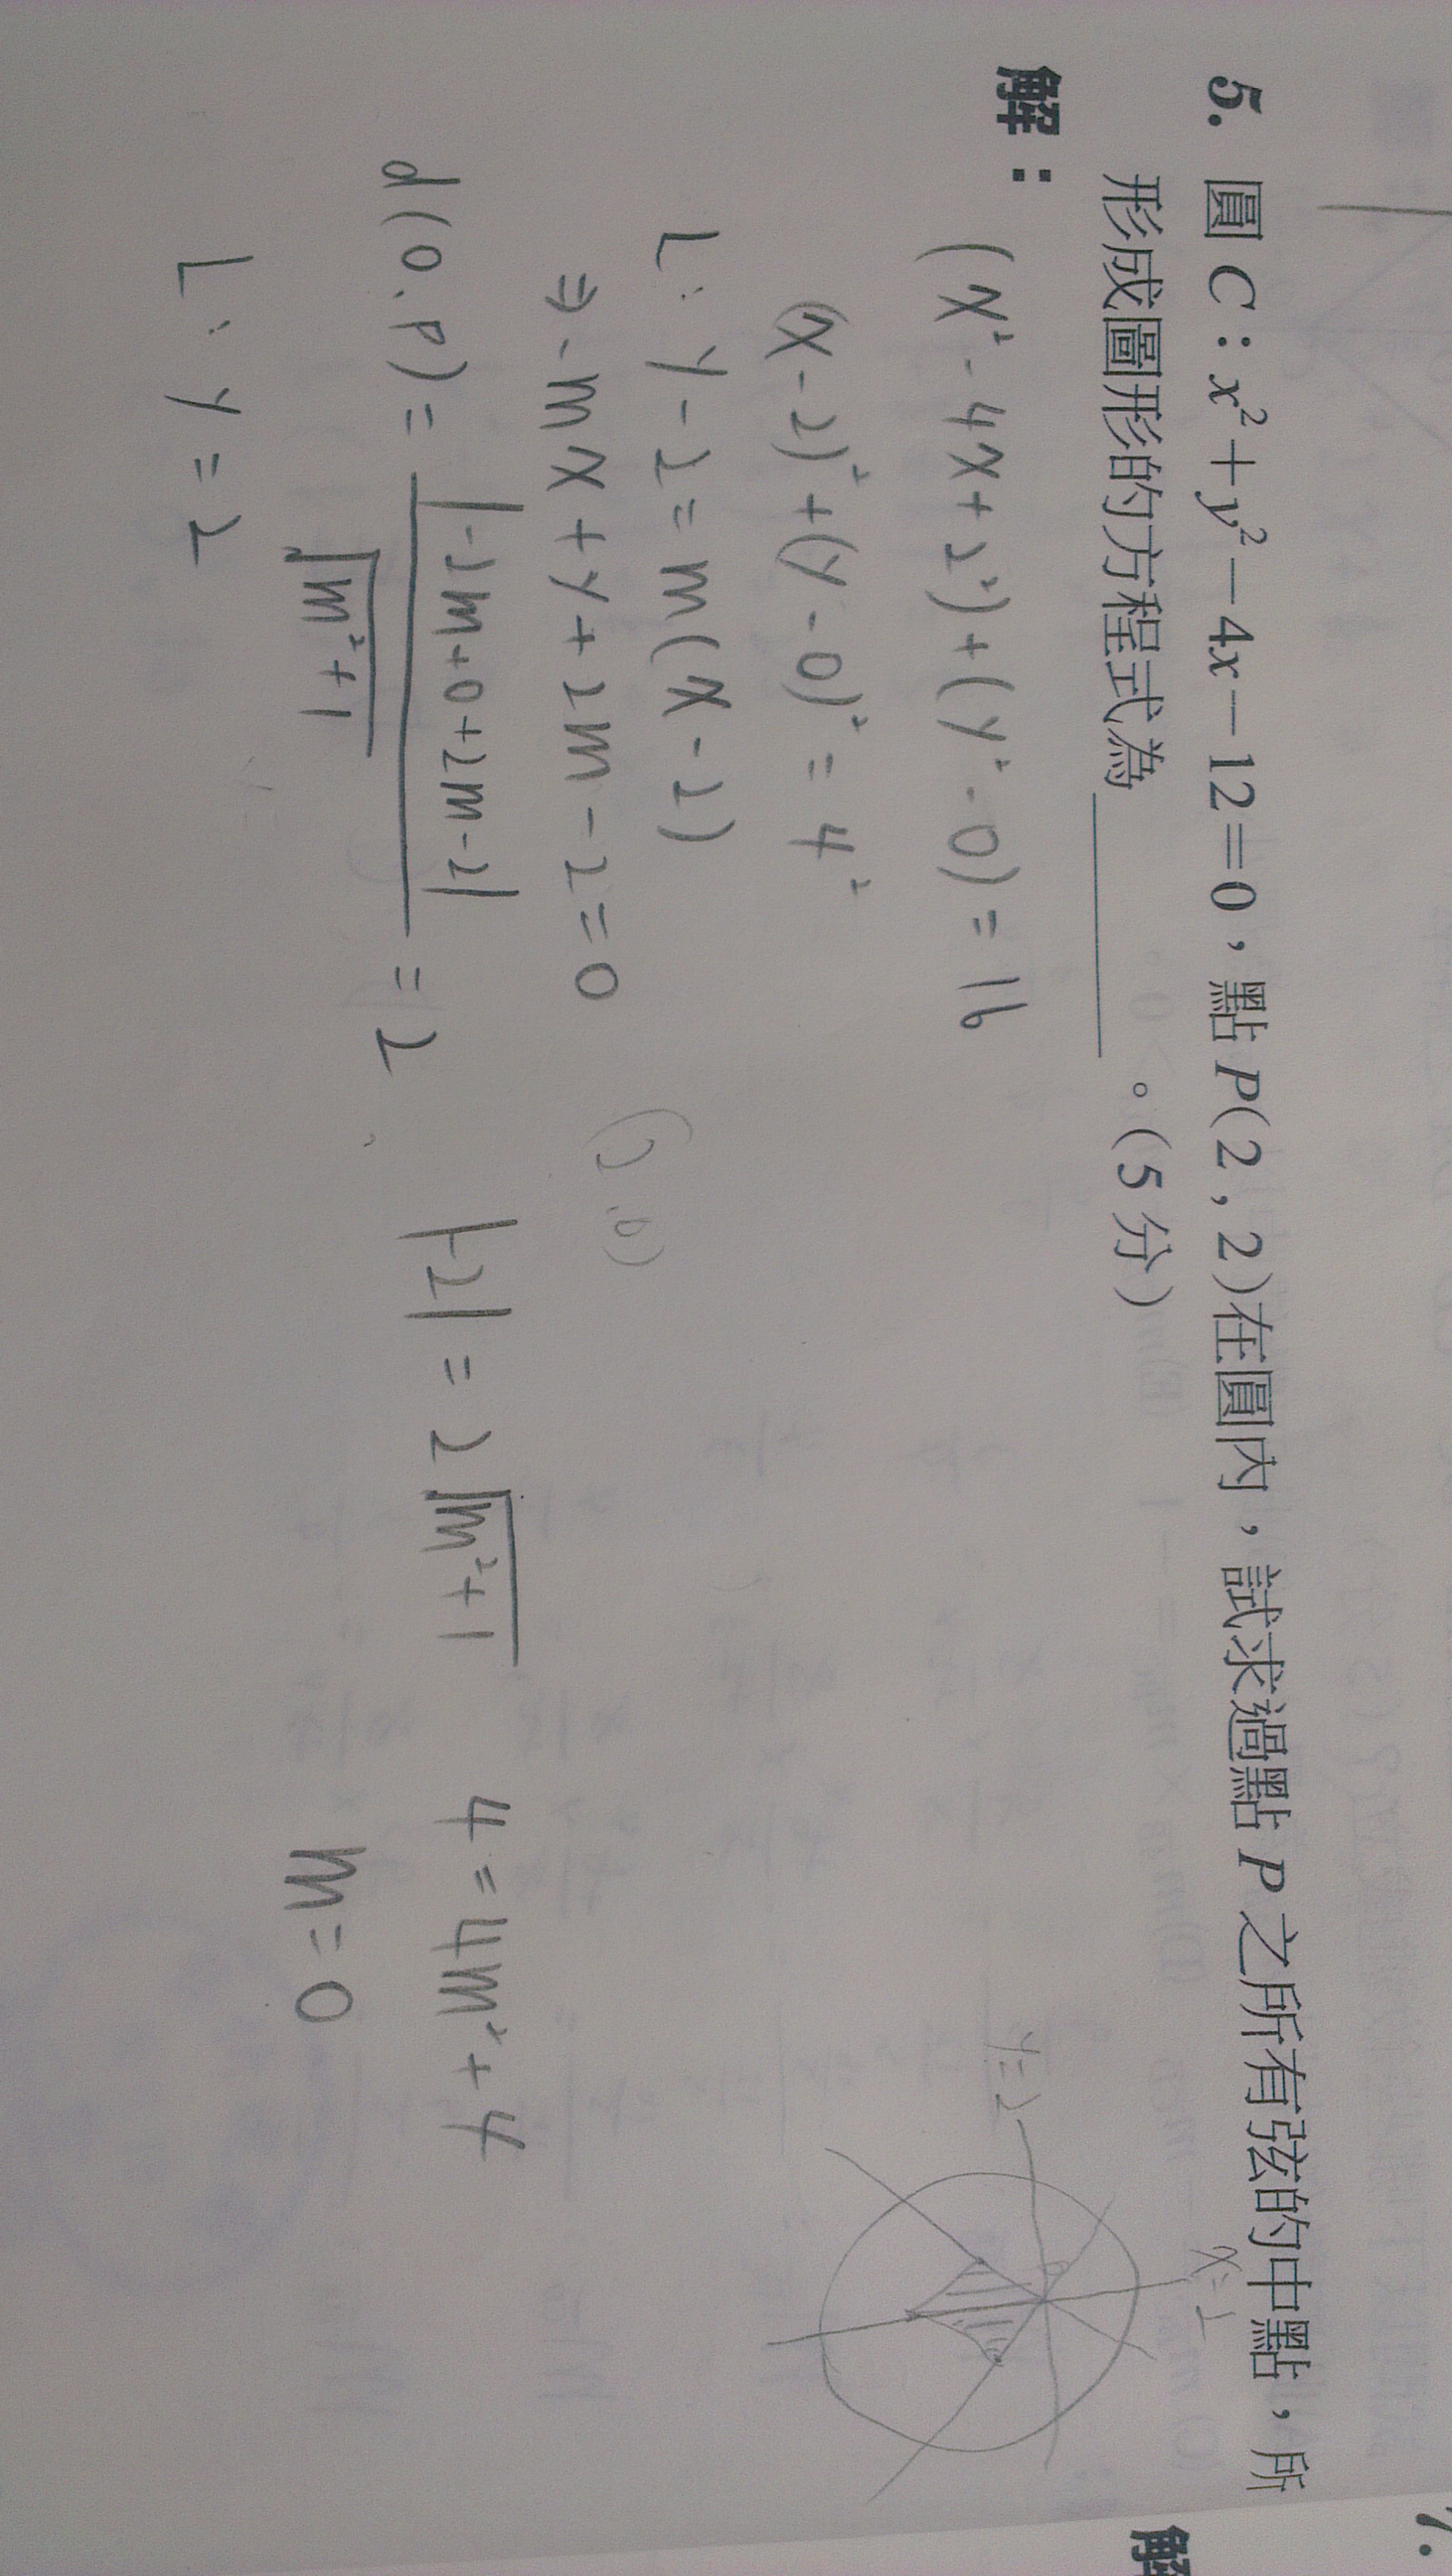 5. 圓 C：x²＋y²－4x－12＝0，點 P(2，2)在圓內，試求過點 P 之所有弦的中點，所
形成圖形的方程式為＿＿＿＿。(5 分)
解：
(x²-4x+2²)+(y²-0)=16
(x-2)²+(y-0)²=4²
L: y-2=m(x-2)
⇒-mx+y+2m-2=0
(2,0)
d(O.P)=|-2m+0+2m-2|/√(m²+1)=2
|-2|=2√(m²+1)
4=4m²+4
m=0
L: y=2
y=2
x=2
7.
解